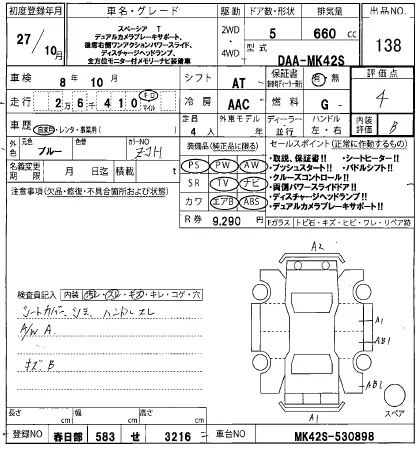 初度登録年月
27/10月
車名・グレード
スペーシア T
デュアルカメラブレーキサポート、
後席右側ワンアクションパワースライド、
ディスチャージヘッドランプ、
全方位モニター付メモリーナビ装着車
駆動
2WD
・
4WD
ドア数・形状
5
排気量
660 cc
型式
DAA-MK42S
出品NO.
138
車検
8年10月
シフト
AT
保証書
評価点
4
走行
2万6千410
キロ
マイル
冷房
AAC
燃料
G
車歴
自家用・レンタ・事業用( )
定員
4人
外車モデル
年
ディーラー
並行
ハンドル
左・右
内装評価
B
外色
元色
ブルー
色替
カラーNO
ZJH
名義変更期限
月 日
積載 t
装備品(純正品に限る)
PS PW AW
SR TV ナビ
カワ エアB ABS
R券 9,290円
セールスポイント(正常に作動するもの)
・取説、保証書!! ・シートヒーター!!
・プッシュスタート!! ・パドルシフト!
・クルーズコントロール!!
・両側パワースライドドア!!
・ディスチャージヘッドランプ!!
・デュアルカメラブレーキサポート!!
注意事項(欠品・修復・不具合箇所および状態)
Fガラス トビ石・キズ・ヒビ・ワレ・リペア跡
検査員記入
内装 汚レ・スレ・キズ・キレ・コゲ・穴
シートカバー シミ ハンドルスレ
A/W A
キズB
A2
A1
AB1
AB1
A1
スペア
長さ cm
幅 cm
高さ cm
登録NO 春日部 583 せ 3216
車台NO MK42S-530898